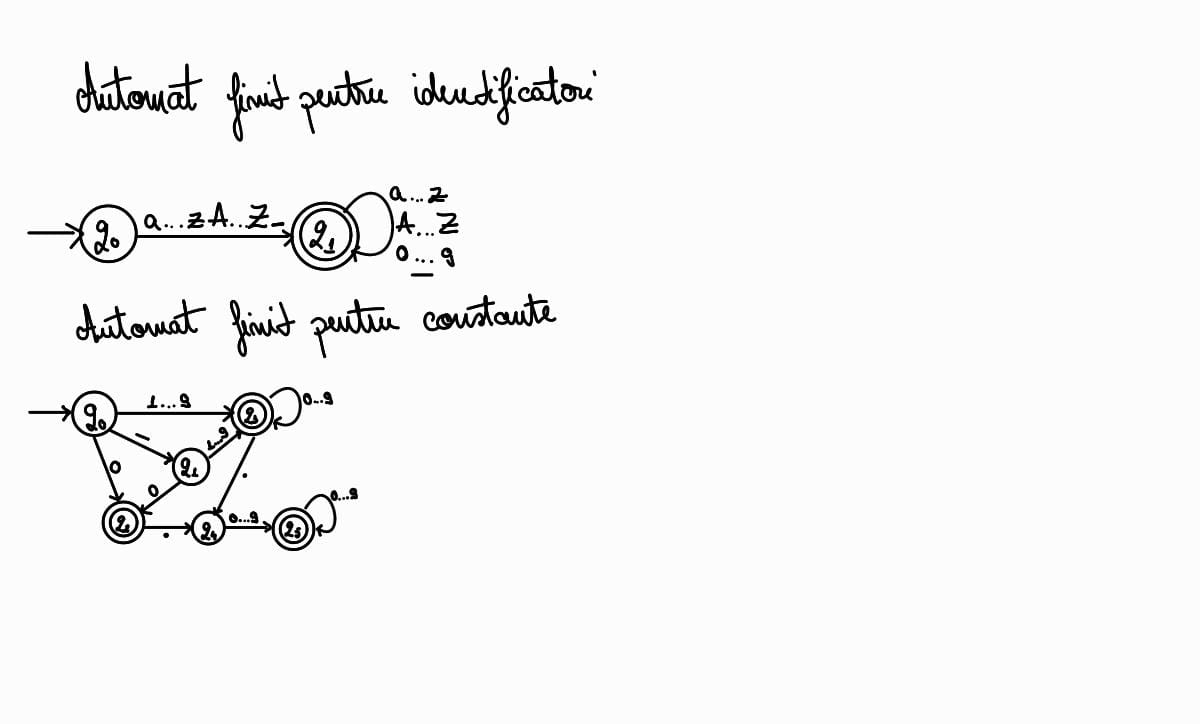 Automat finit pentru identificatori
a...z
q0 a...zA...Z_ q1 A...Z
0...9
_
Automat finit pentru constante
q0 1...9 0...9
- 1...9
0 q1
0 . 0...9
. q4 0...9 q5